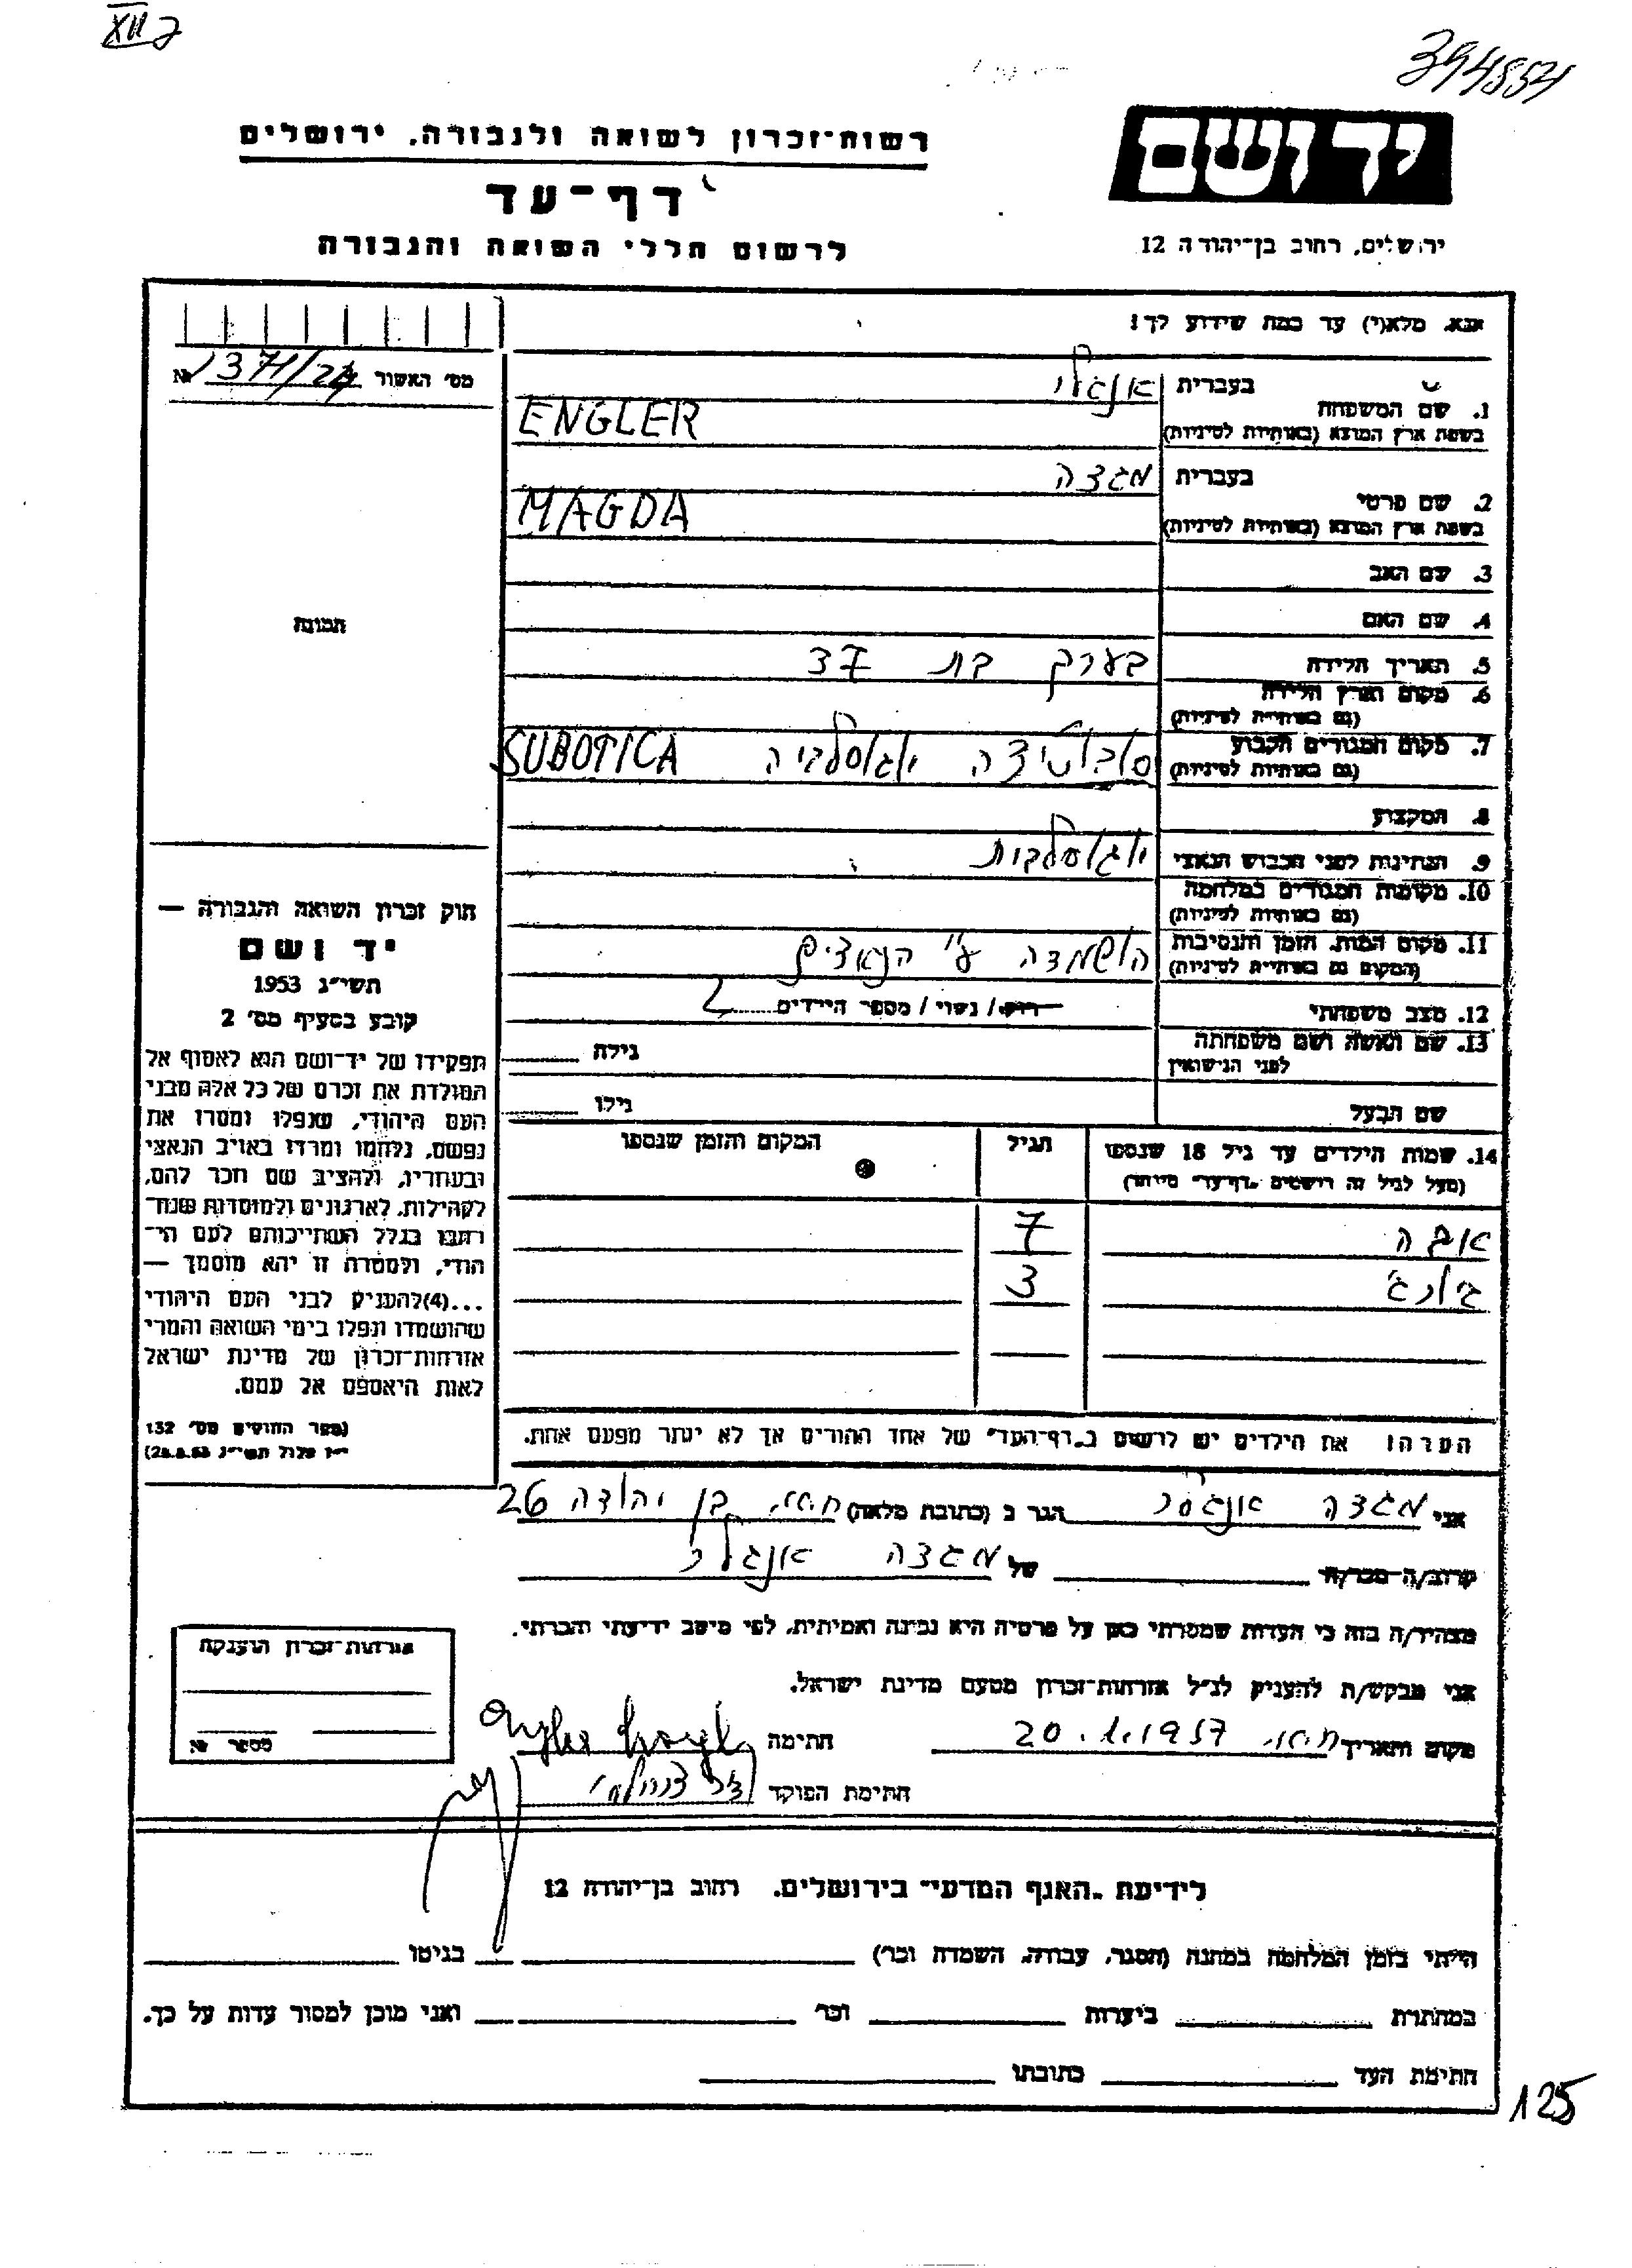 XII 2
394554
יד ושם
ירושלים, רחוב בן־יהודה 12
רשות־זכרון לשואה ולגבורה, ירושלים
דף־עד
לרשום חללי השואה והגבורה
אנא, מלא(י) עד כמה שידוע לך!
מס' האשור № 1371/24
1. שם המשפחה
בעברית אנגלר
בשפת ארץ המוצא (באותיות לטיניות) ENGLER
2. שם פרטי
בעברית מגדה
בשפת ארץ המוצא (באותיות לטיניות) MAGDA
3. שם האב
4. שם האם
5. תאריך הלידה בערך בת 37
6. מקום וארץ הלידה
(גם באותיות לטיניות)
7. מקום המגורים הקבוע סובוטיצה יוגוסלביה SUBOTICA
(גם באותיות לטיניות)
8. המקצוע
9. הנתינות לפני הכבוש הנאצי יוגוסלבית
10. מקומות המגורים במלחמה
(גם באותיות לטיניות)
11. מקום המות, הזמן והנסיבות הושמדה ע"י הנאצים
(המקום גם באותיות לטיניות)
12. מצב משפחתי רווק / נשוי / מספר הילדים 2
13. שם האשה ושם משפחתה
לפני הנישואין
גילה
שם הבעל
גילו
14. שמות הילדים עד גיל 18 שנספו
(מעל לגיל זה רושמים "דף־עד" מיוחד)
הגיל
המקום והזמן שנספו
אוה 7
גיורג' 3
הערה! את הילדים יש לרשום ב"דף־העד" של אחד ההורים אך לא יותר מפעם אחת.
תמונה
חוק זכרון השואה והגבורה —
יד ושם
תשי"ג 1953
קובע בסעיף מס' 2
תפקידו של יד־ושם הוא לאסוף אל
המולדת את זכרם של כל אלה מבני
העם היהודי, שנפלו ומסרו את
נפשם, נלחמו ומרדו באויב הנאצי
ובעוזריו, ולהציב שם וזכר להם,
לקהילות, לארגונים ולמוסדות שנח־
רבו בגלל השתייכותם לעם הי־
הודי, ולמטרה זו יהא מוסמך —
...(4) להעניק לבני העם היהודי
שהושמדו ונפלו בימי השואה והמרי
אזרחות־זכרון של מדינת ישראל
לאות היאספם אל עמם.
(ספר החוקים מס' 132
י"ז אלול תשי"ג 28.8.53)
אני מגדה אנגלר הגר ב (כתובת מלאה) חיפה, בן יהודה 26
קרוב/ה מכר/ה של מגדה אנגלר
מצהיר/ה בזה כי העדות שמסרתי כאן על פרטיה היא נכונה ואמיתית, לפי מיטב ידיעתי והכרתי.
אני מבקש/ת להעניק לנ"ל אזרחות־זכרון מטעם מדינת ישראל.
מקום ותאריך חיפה, 20.1.1957 חתימה
חתימת הפוקד
אזרחות־זכרון הוענקה
מספר №
לידיעת "האגף המדעי" בירושלים, רחוב בן־יהודה 12
הייתי בזמן המלחמה במחנה (הסגר, עבודה, השמדה וכו') בגיטו
במחתרת ביערות וכו' ואני מוכן למסור עדות על כך.
חתימת העד כתובתו
125